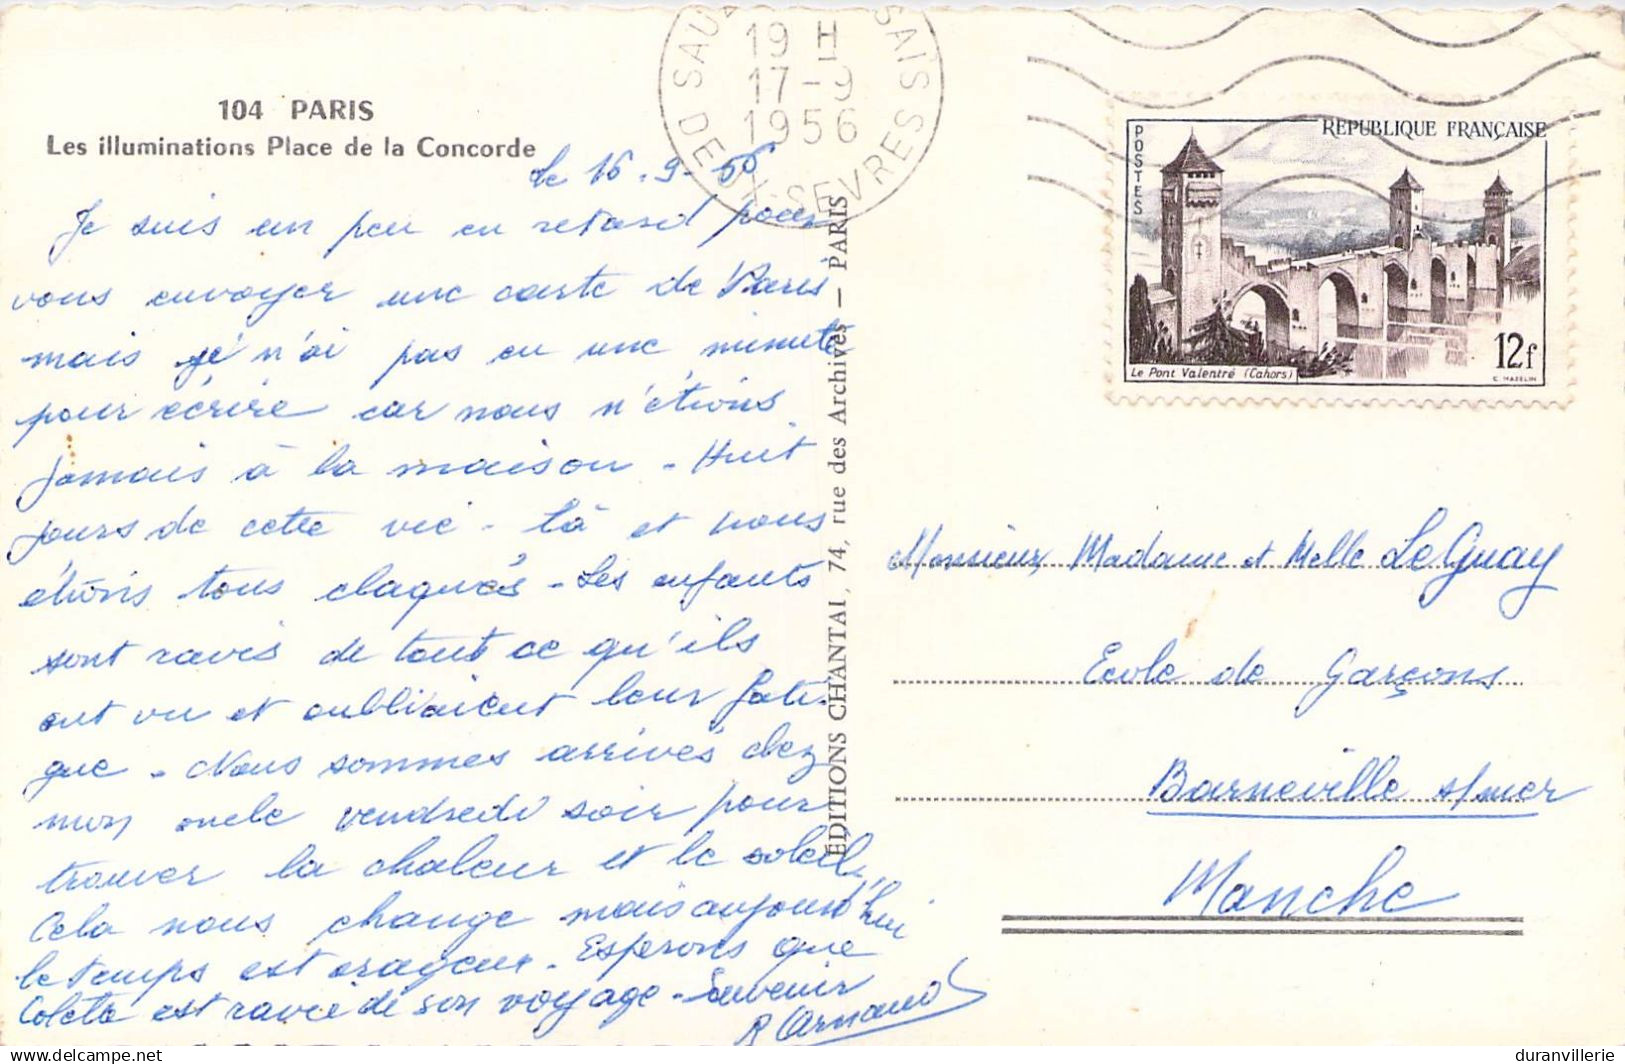 104 PARIS
Les illuminations Place de la Concorde
le 16-9-56
Je suis un peu en retard pour
vous envoyer une carte de Paris
mais je n'ai pas eu une minute
pour écrire car nous n'étions
jamais à la maison - Huit
jours de cette vie-là et nous
étions tous claqués - Les enfants
sont ravis de tout ce qu'ils
ont vu et oubliaient leur fati-
gue - Nous sommes arrivés chez
mon oncle vendredi soir pour
trouver la chaleur et le soleil,
Cela nous change mais aujourd'hui
le temps est orageux - Espérons que
est ravie de son voyage - Souvenir
R Arnaud
19 H
17-9
1956
DEUX-SEVRES
EDITIONS CHANTAL, 74, rue des Archives - PARIS
POSTES
REPUBLIQUE FRANÇAISE
Le Pont Valentré (Cahors)
12f
C. HAZELIN
Monsieur, Madame et Melle LeGuay
Ecole de Garçons
Barneville s/mer
Manche
duranvillerie